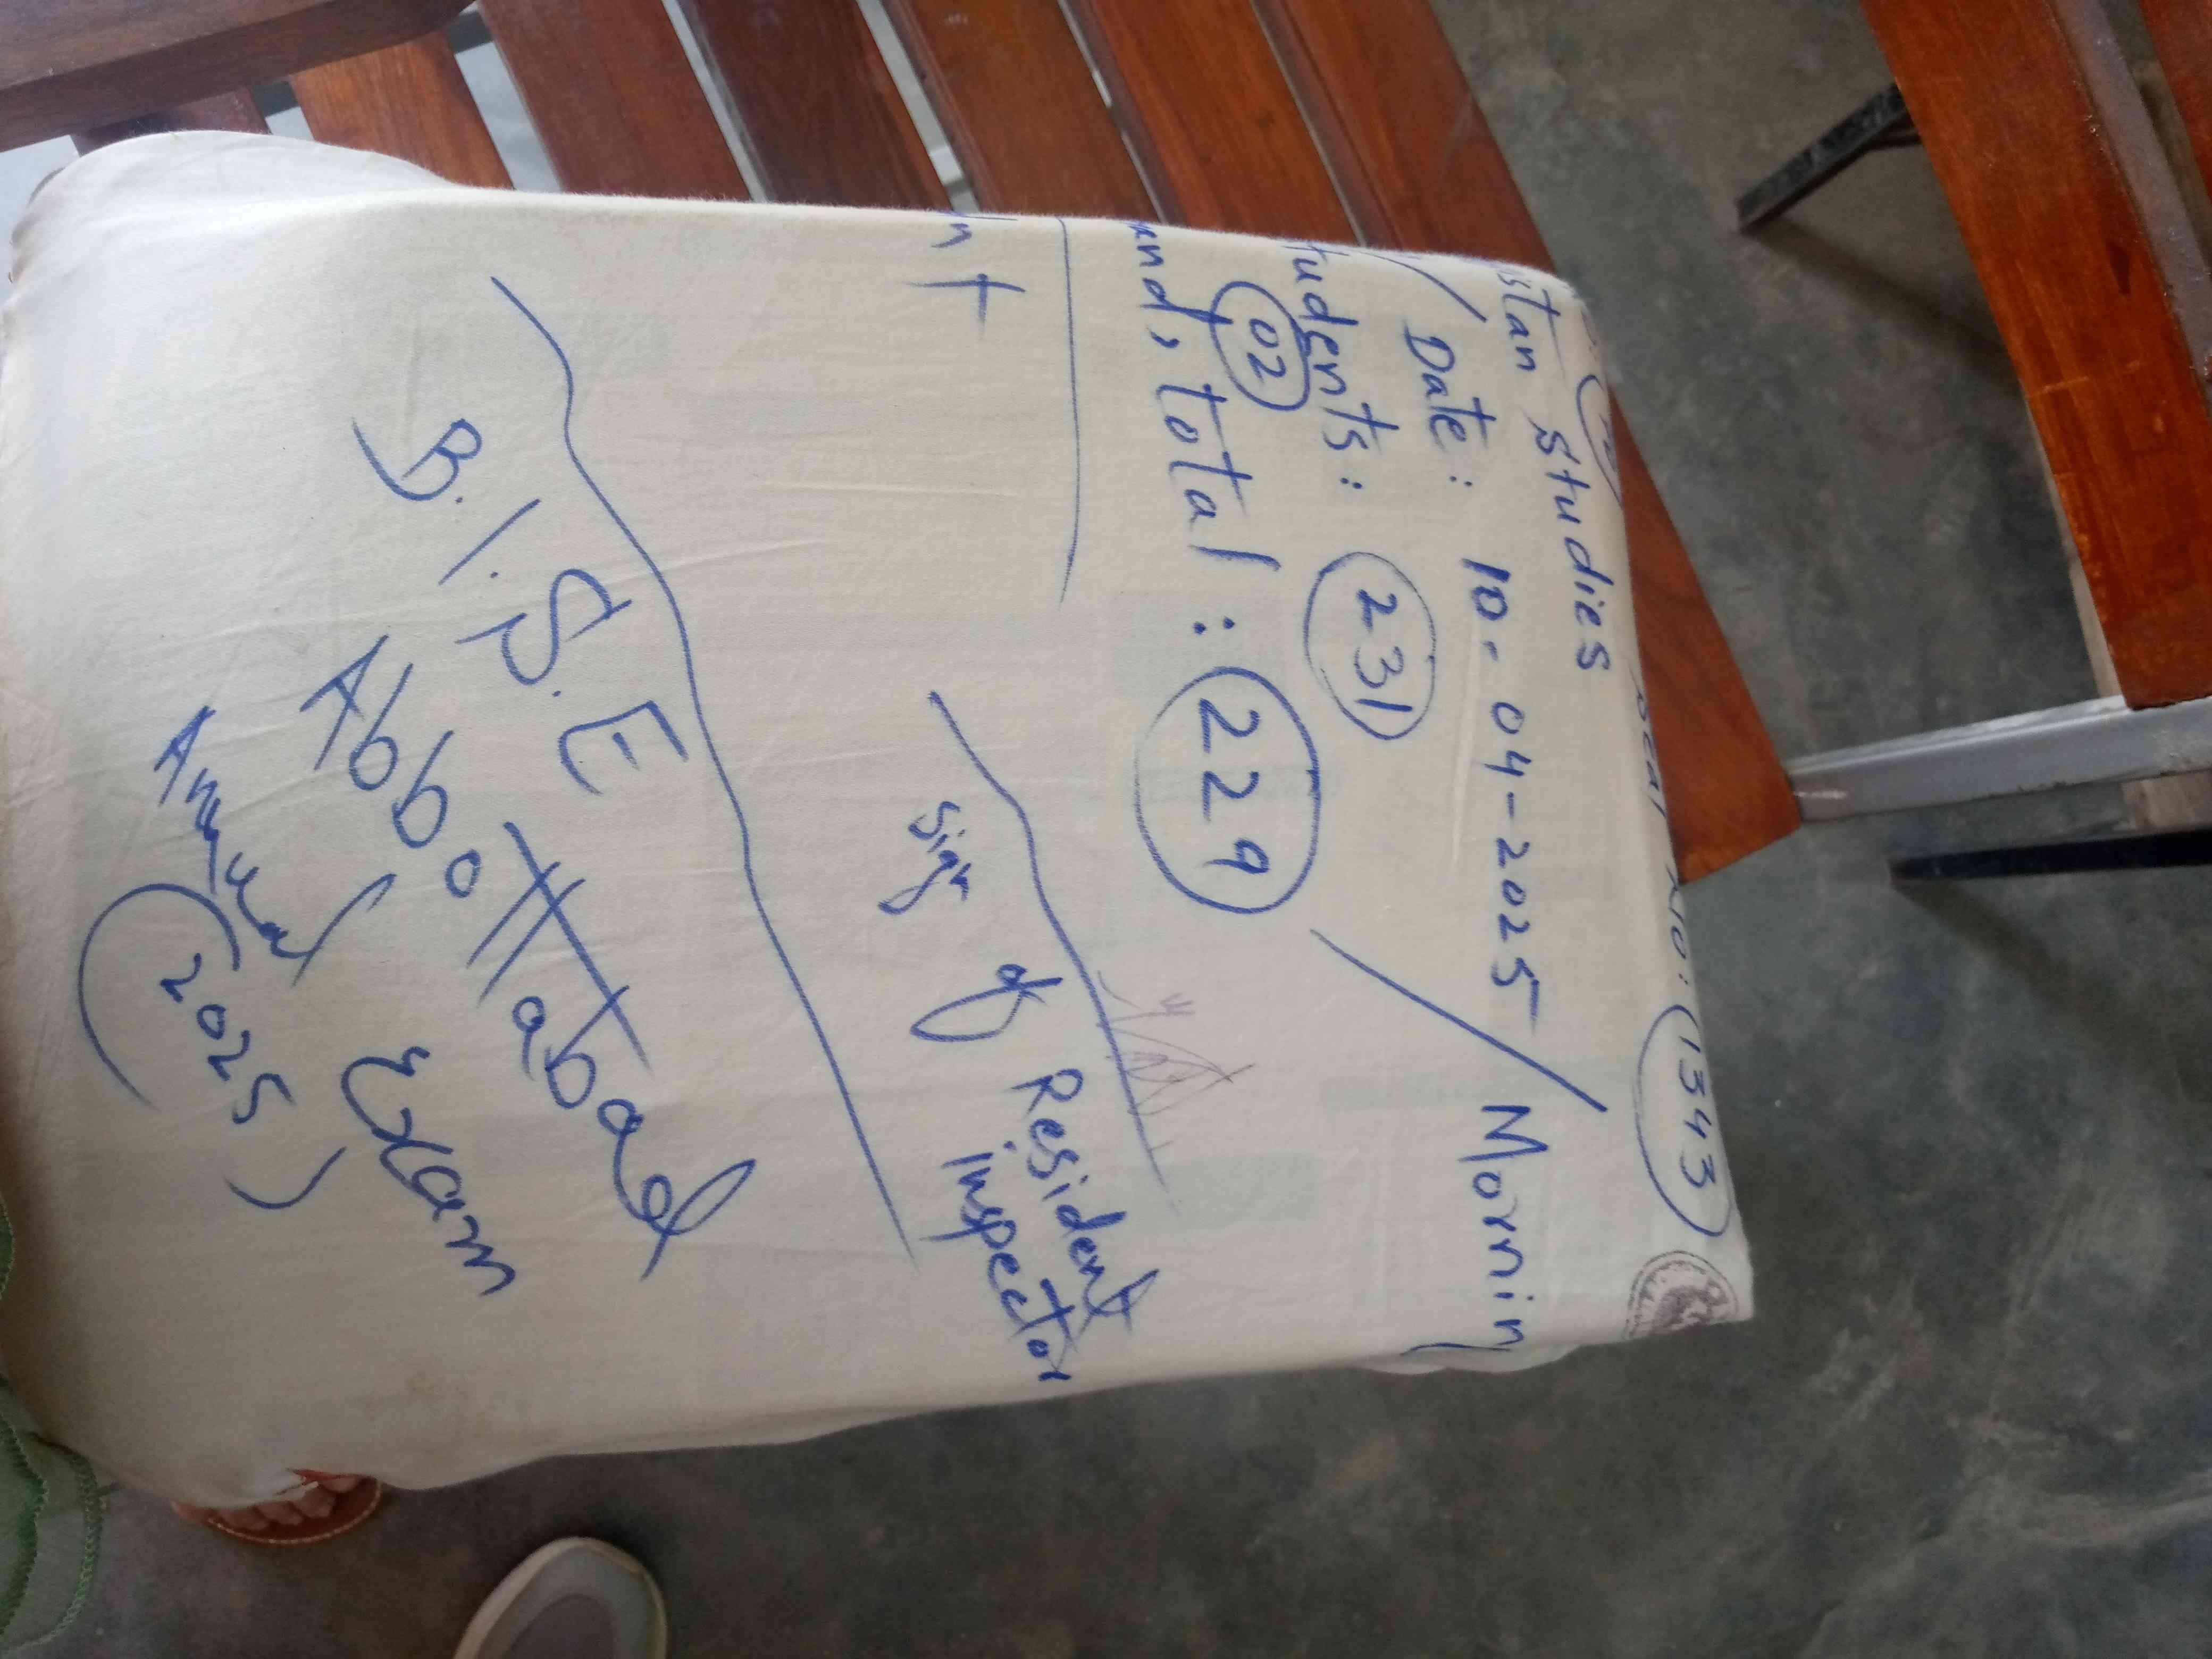 Seal No: 1343
istan Studies
Date: 10-04-2025 / Mornin
tudents: 231
02
and, total: 229
nt
Sign of Resident
Inspector
B.I.S.E
Abbottabad
Annual Exam
(2025)